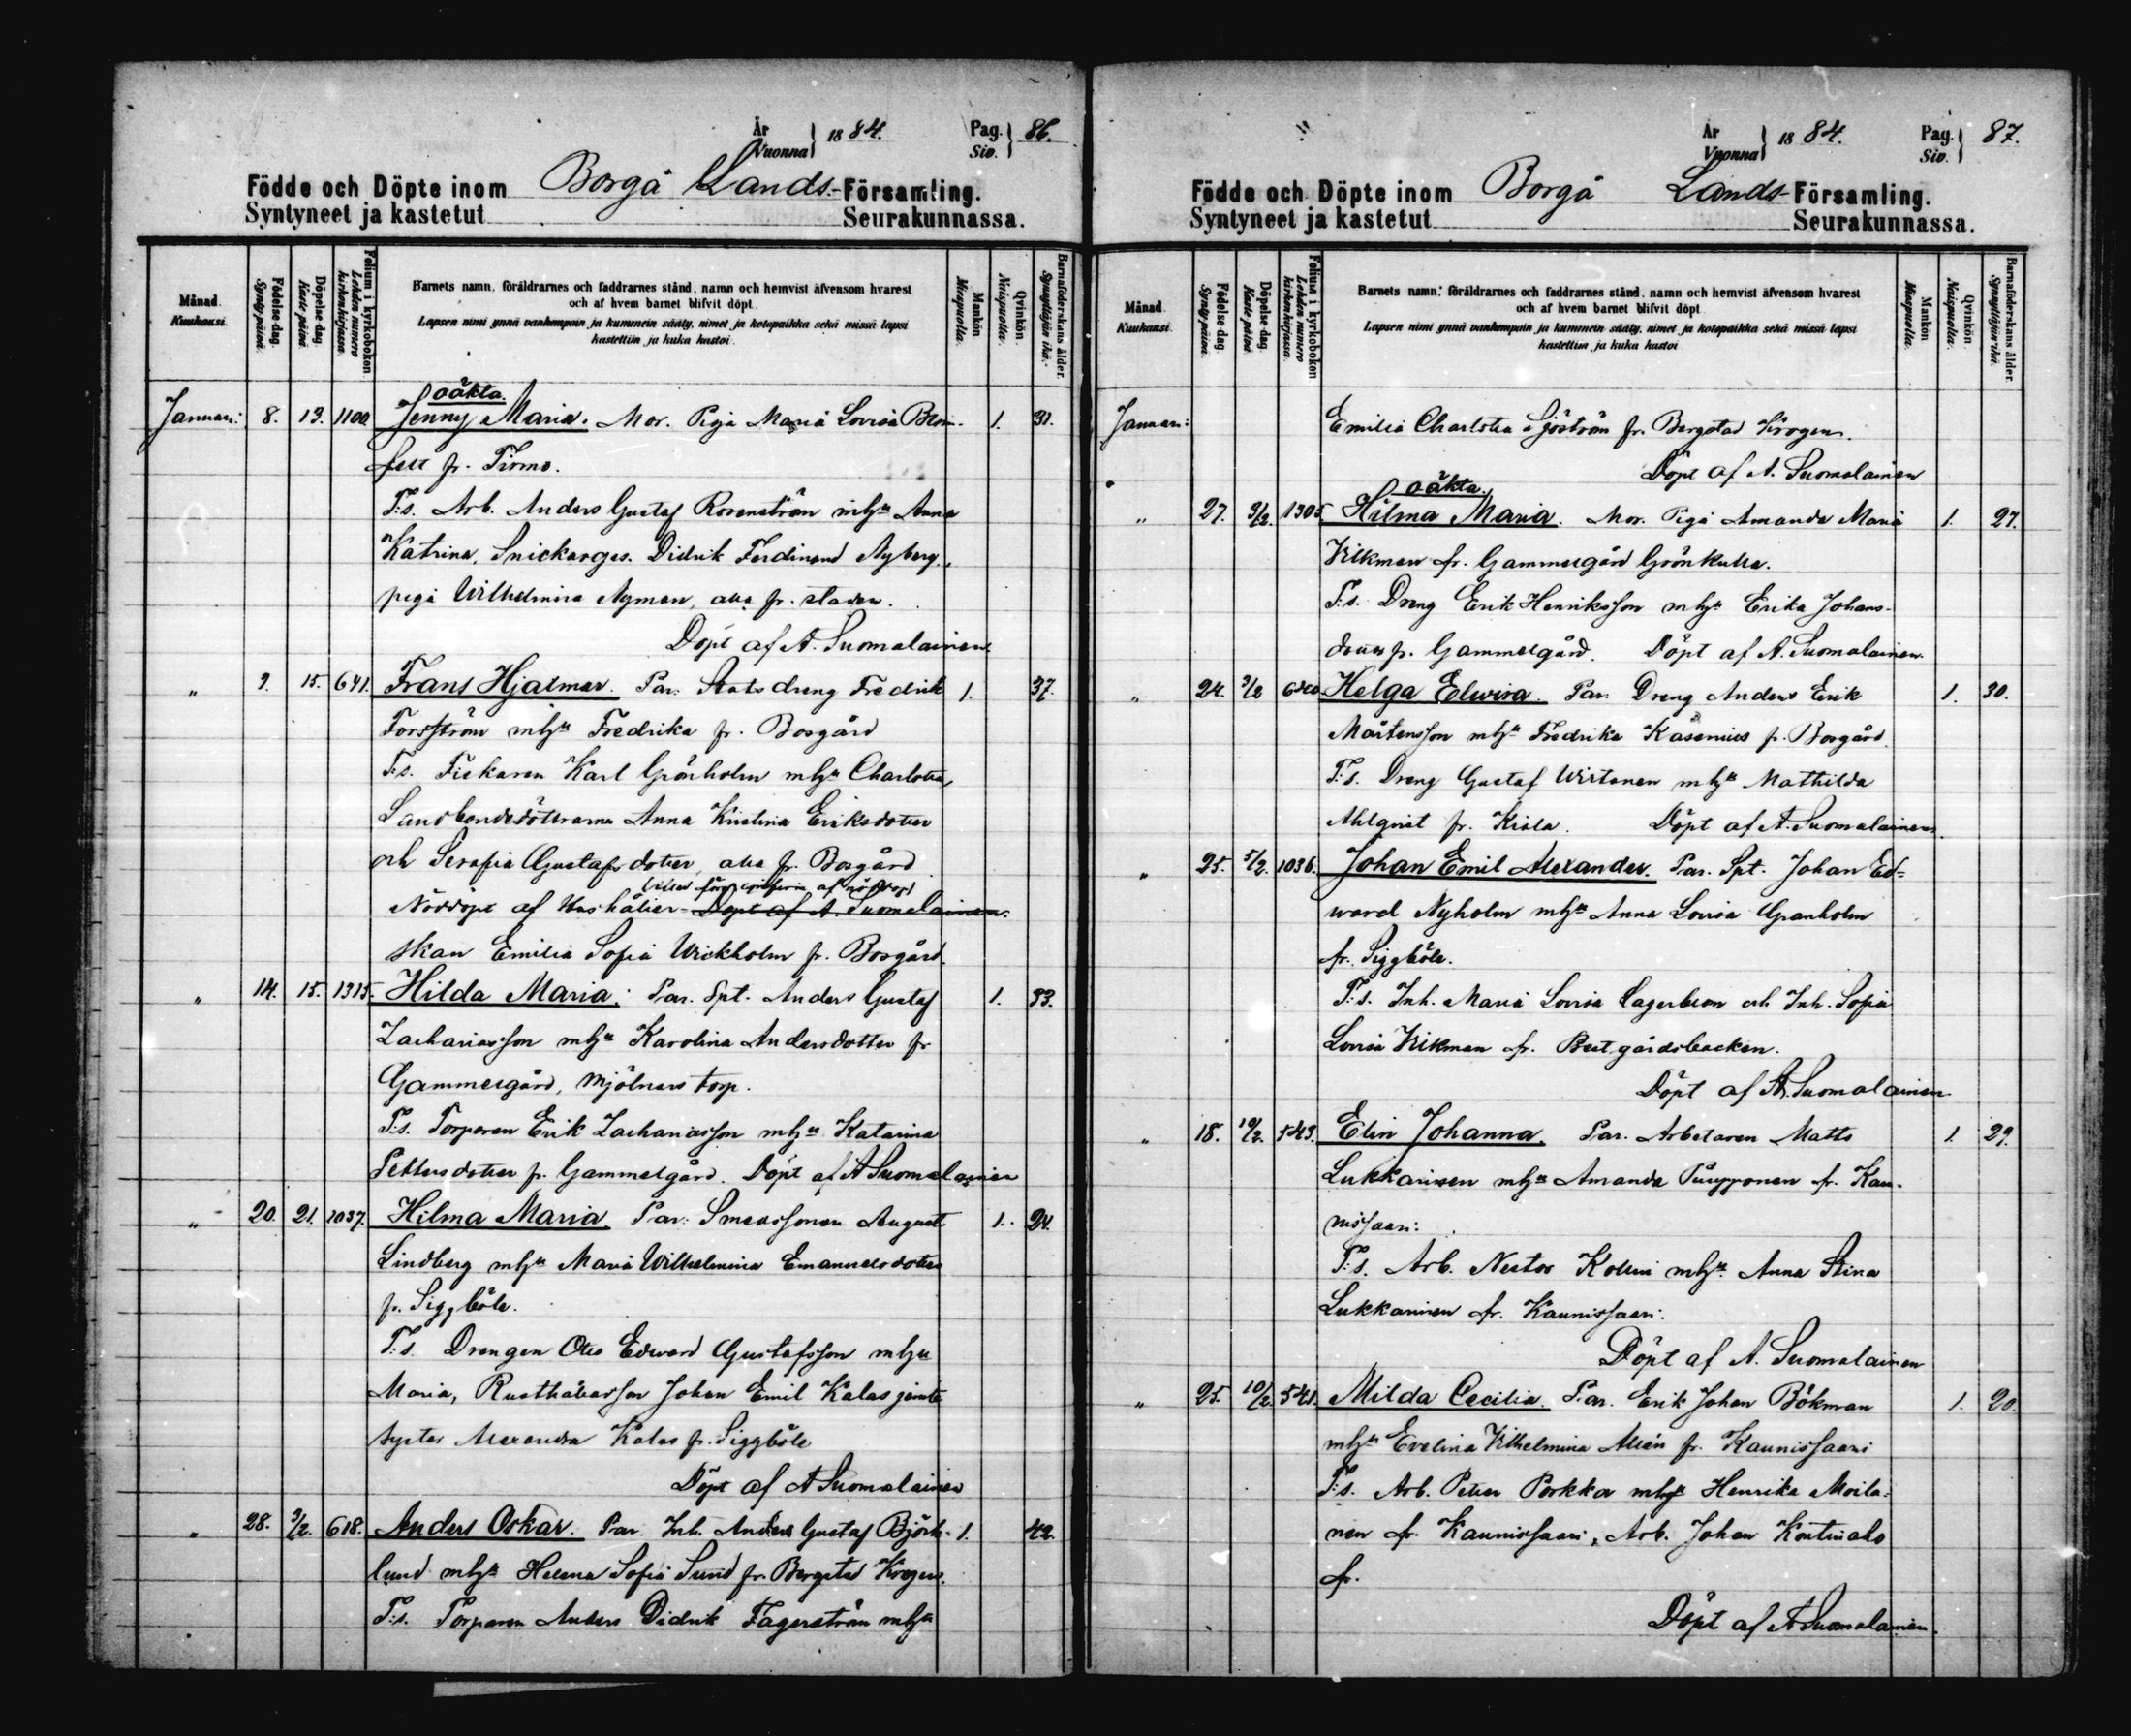 År
Vuonna} 1884. Pag.
Siv.} 86.
Födde och Döpte inom Borgå Lands-Församling.
Syntyneet ja kastetut Seurakunnassa.
Månad.
Kuukausi.
Födelse dag.
Synty päivä.
Döpelse dag.
Kaste päivä.
Folium i kyrkoboken
Lehden numero
kirkonkirjassa.
Barnets namn, föräldrarnes och faddrarnes stånd, namn och hemvist äfvensom hvarest
och af hvem barnet blifvit döpt.
Lapsen nimi ynnä vanhempain ja kummein sääty, nimet ja kotopaikka sekä missä lapsi
kastettiin ja kuka kastoi.
Mankön
Miespuolia.
Qvinkön
Naispuolia.
Barnaföderskans ålder.
Synnyttäjän ikä.
oäkta.
Januari: 8. 13. 1100. Jenny Maria. Mor. Piga Maria Lovisa Blom- 1. 31.
felt fr. Tirmo.
T.s. Arb. Anders Gustaf Rosenström mhu Anna
Katrina, Snickarges. Didrik Ferdinand Nyberg,
piga Wilhelmina Nyman, alla fr. staden.
Döpt af A. Suomalainen.
" 9. 15. 641. Frans Hjalmar. Par: Statsdreng Fredrik 1. 37.
Forsström mhu Fredrika fr. Bosgård
T.s. Fiskaren Karl Grönholm mhu Charlotta,
Landbondedöttrarna Anna Kristina Eriksdotter
och Serafia Gustafsdotter, alla fr. Bosgård
Nöddöpt af Hushåller- Döpt af A. Suomalainen.
skan Emilia Sofia Wickholm fr. Bosgård.
" 14. 15. 1315. Hilda Maria. Par. Spt. Anders Gustaf 1. 33.
Zachariasson mhu Karolina Andersdotter fr
Gammelgård, Mjölnars torp.
T.s. Torparen Erik Zachariasson mhu Katarina
Pettersdotter fr. Gammelgård. Döpt af A Suomalainen
" 20. 21. 1037. Hilma Maria. Par: Smedssonen August 1. 24.
Lindberg mhu Maria Wilhelmina Emanuelsdotter
fr. Siggböle.
T.s. Drengen Otto Edward Gustafsson mhu
Maria, Rusthållarson Johan Emil Kalas jemte
syster Alexandra Kalas fr. Siggböle
Döpt af A Suomalainen
" 28. 3/2. 618. Anders Oskar. Par. Inh. Anders Gustaf Björk- 1. 42.
lund mhu Helena Sofia Sund fr. Bergstad Krogen.
T.s. Torparen Anders Didrik Fagerström mhu
År
Vuonna} 1884. Pag.
Siv.} 87.
Födde och Döpte inom Borgå Lands-Församling.
Syntyneet ja kastetut Seurakunnassa.
Månad.
Kuukausi.
Födelse dag
Synty päivä.
Döpelse dag
Kaste päivä
Folium i kyrkoboken
Lehden numero
kirkonkirjassa.
Barnets namn, föräldrarnes och faddrarnes stånd, namn och hemvist äfvensom hvarest
och af hvem barnet blifvit döpt
Lapsen nimi ynnä vanhempain ja kummein sääty, nimet ja kotopaikka sekä missä lapsi
kastettiin ja kuka kastoi
Mankön
Miespuolia.
Qvinkön
Naispuolia.
Barnaföderskans ålder.
Synnyttäjän ikä
Januari: Emilia Charlotta Sjöström fr. Bergstad Krogen.
Döpt af A. Suomalainen
oäkta.
" 27. 3/2. 1305. Hilma Maria. Mor. Piga Amanda Maria 1. 27.
Vikman fr. Gammelgård Grönkulla.
T.s. Dreng Erik Henriksson mhu Erika Johans-
dotter fr. Gammelgård. Döpt af A. Suomalainen.
" 24. 3/2 640 Helga Elvira. Par. Dreng Anders Erik 1. 30.
Mårtensson mhu Fredrika Kasenius fr. Bosgård.
T.s. Dreng Gustaf Wirtanen mhu Mathilda
Ahlqvist fr. Kiala. Döpt af A. Suomalainen.
" 25. 5/2. 1036. Johan Emil Alexander. Par. Spt. Johan Ed-
ward Nyholm mhu Anna Lovisa Granholm
fr. Siggböle.
T.s. Inh. Maria Lovisa Lagerblom och Inh. Sofia
Lovisa Vikman fr. Prestgårdsbacken.
Döpt af A. Suomalainen
" 18. 10/2. 543. Elin Johanna. Par. Arbetaren Matts 1. 29.
Lukkarinen mhu Amanda Puupponen fr. Kau-
nissaari:
T.s. Arb. Nestor Kollin mhu Anna Stina
Lukkarinen fr. Kaunissaari:
Döpt af A. Suomalainen
" 25. 10/2. 541. Milda Cecilia. Par. Erik Johan Bökman 1. 20.
mhu Evelina Vilhelmina Allén fr. Kaunissaari
T.s. Arb. Petter Porkka mhu Henrika Moila-
nen fr. Kaunissaari, Arb. Johan Kontinaho
fr.
Döpt af A Suomalainen.